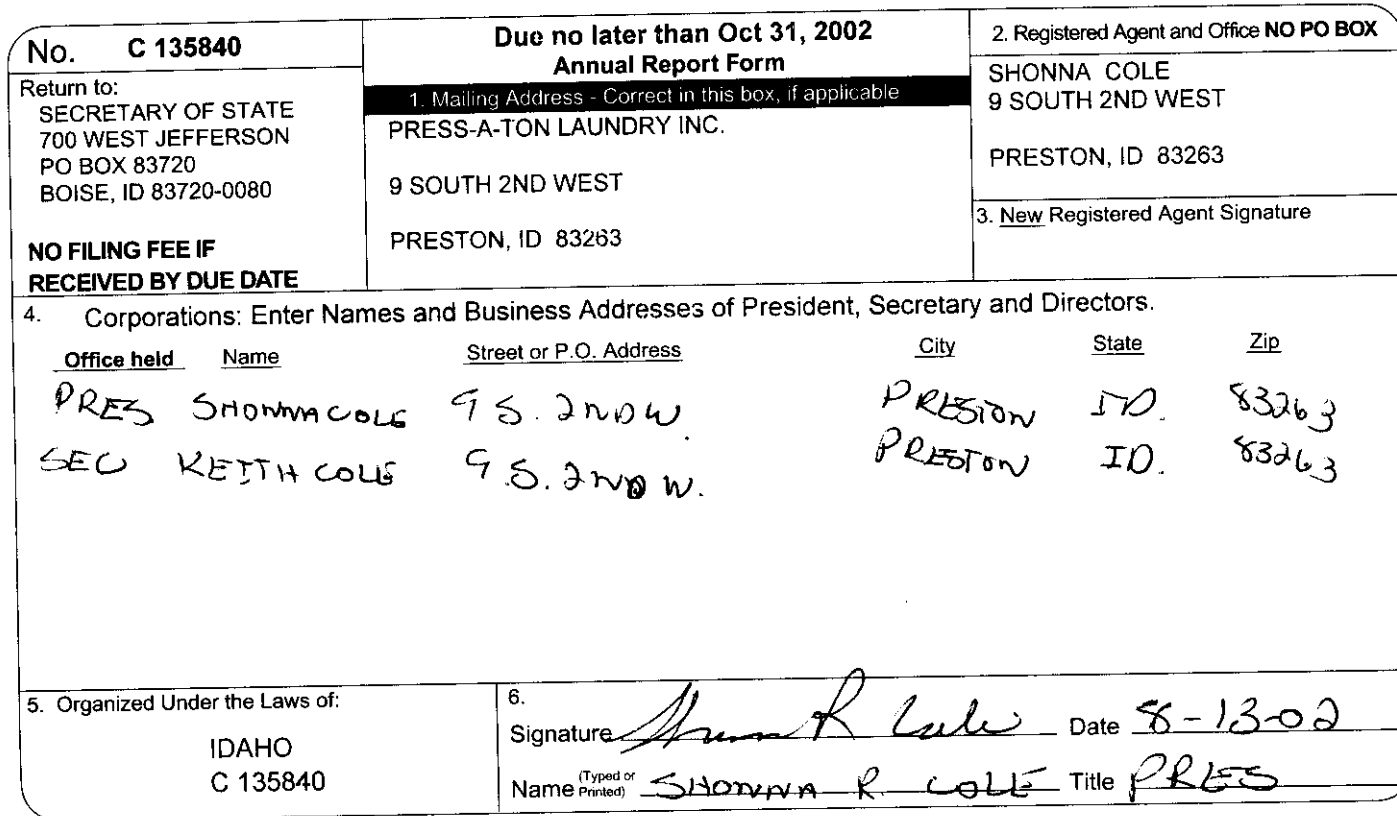 No. C 135840
Return to:
SECRETARY OF STATE
700 WEST JEFFERSON
PO BOX 83720
BOISE, ID 83720-0080
NO FILING FEE IF
RECEIVED BY DUE DATE
Due no later than Oct 31, 2002
Annual Report Form
1. Mailing Address - Correct in this box, if applicable
PRESS-A-TON LAUNDRY INC.
9 SOUTH 2ND WEST
PRESTON, ID 83263
2. Registered Agent and Office NO PO BOX
SHONNA COLE
9 SOUTH 2ND WEST
PRESTON, ID 83263
3. New Registered Agent Signature
4. Corporations: Enter Names and Business Addresses of President, Secretary and Directors.
Office held Name Street or P.O. Address City State Zip
PRES SHONNA COLE 9 S. 2ND W. PRESTON ID. 83263
SEC KEITH COLE 9 S. 2ND W. PRESTON ID. 83263
5. Organized Under the Laws of:
IDAHO
C 135840
6.
Signature Shonna R Cole Date 8-13-02
Name (Typed or Printed) SHONNA R. COLE Title PRES